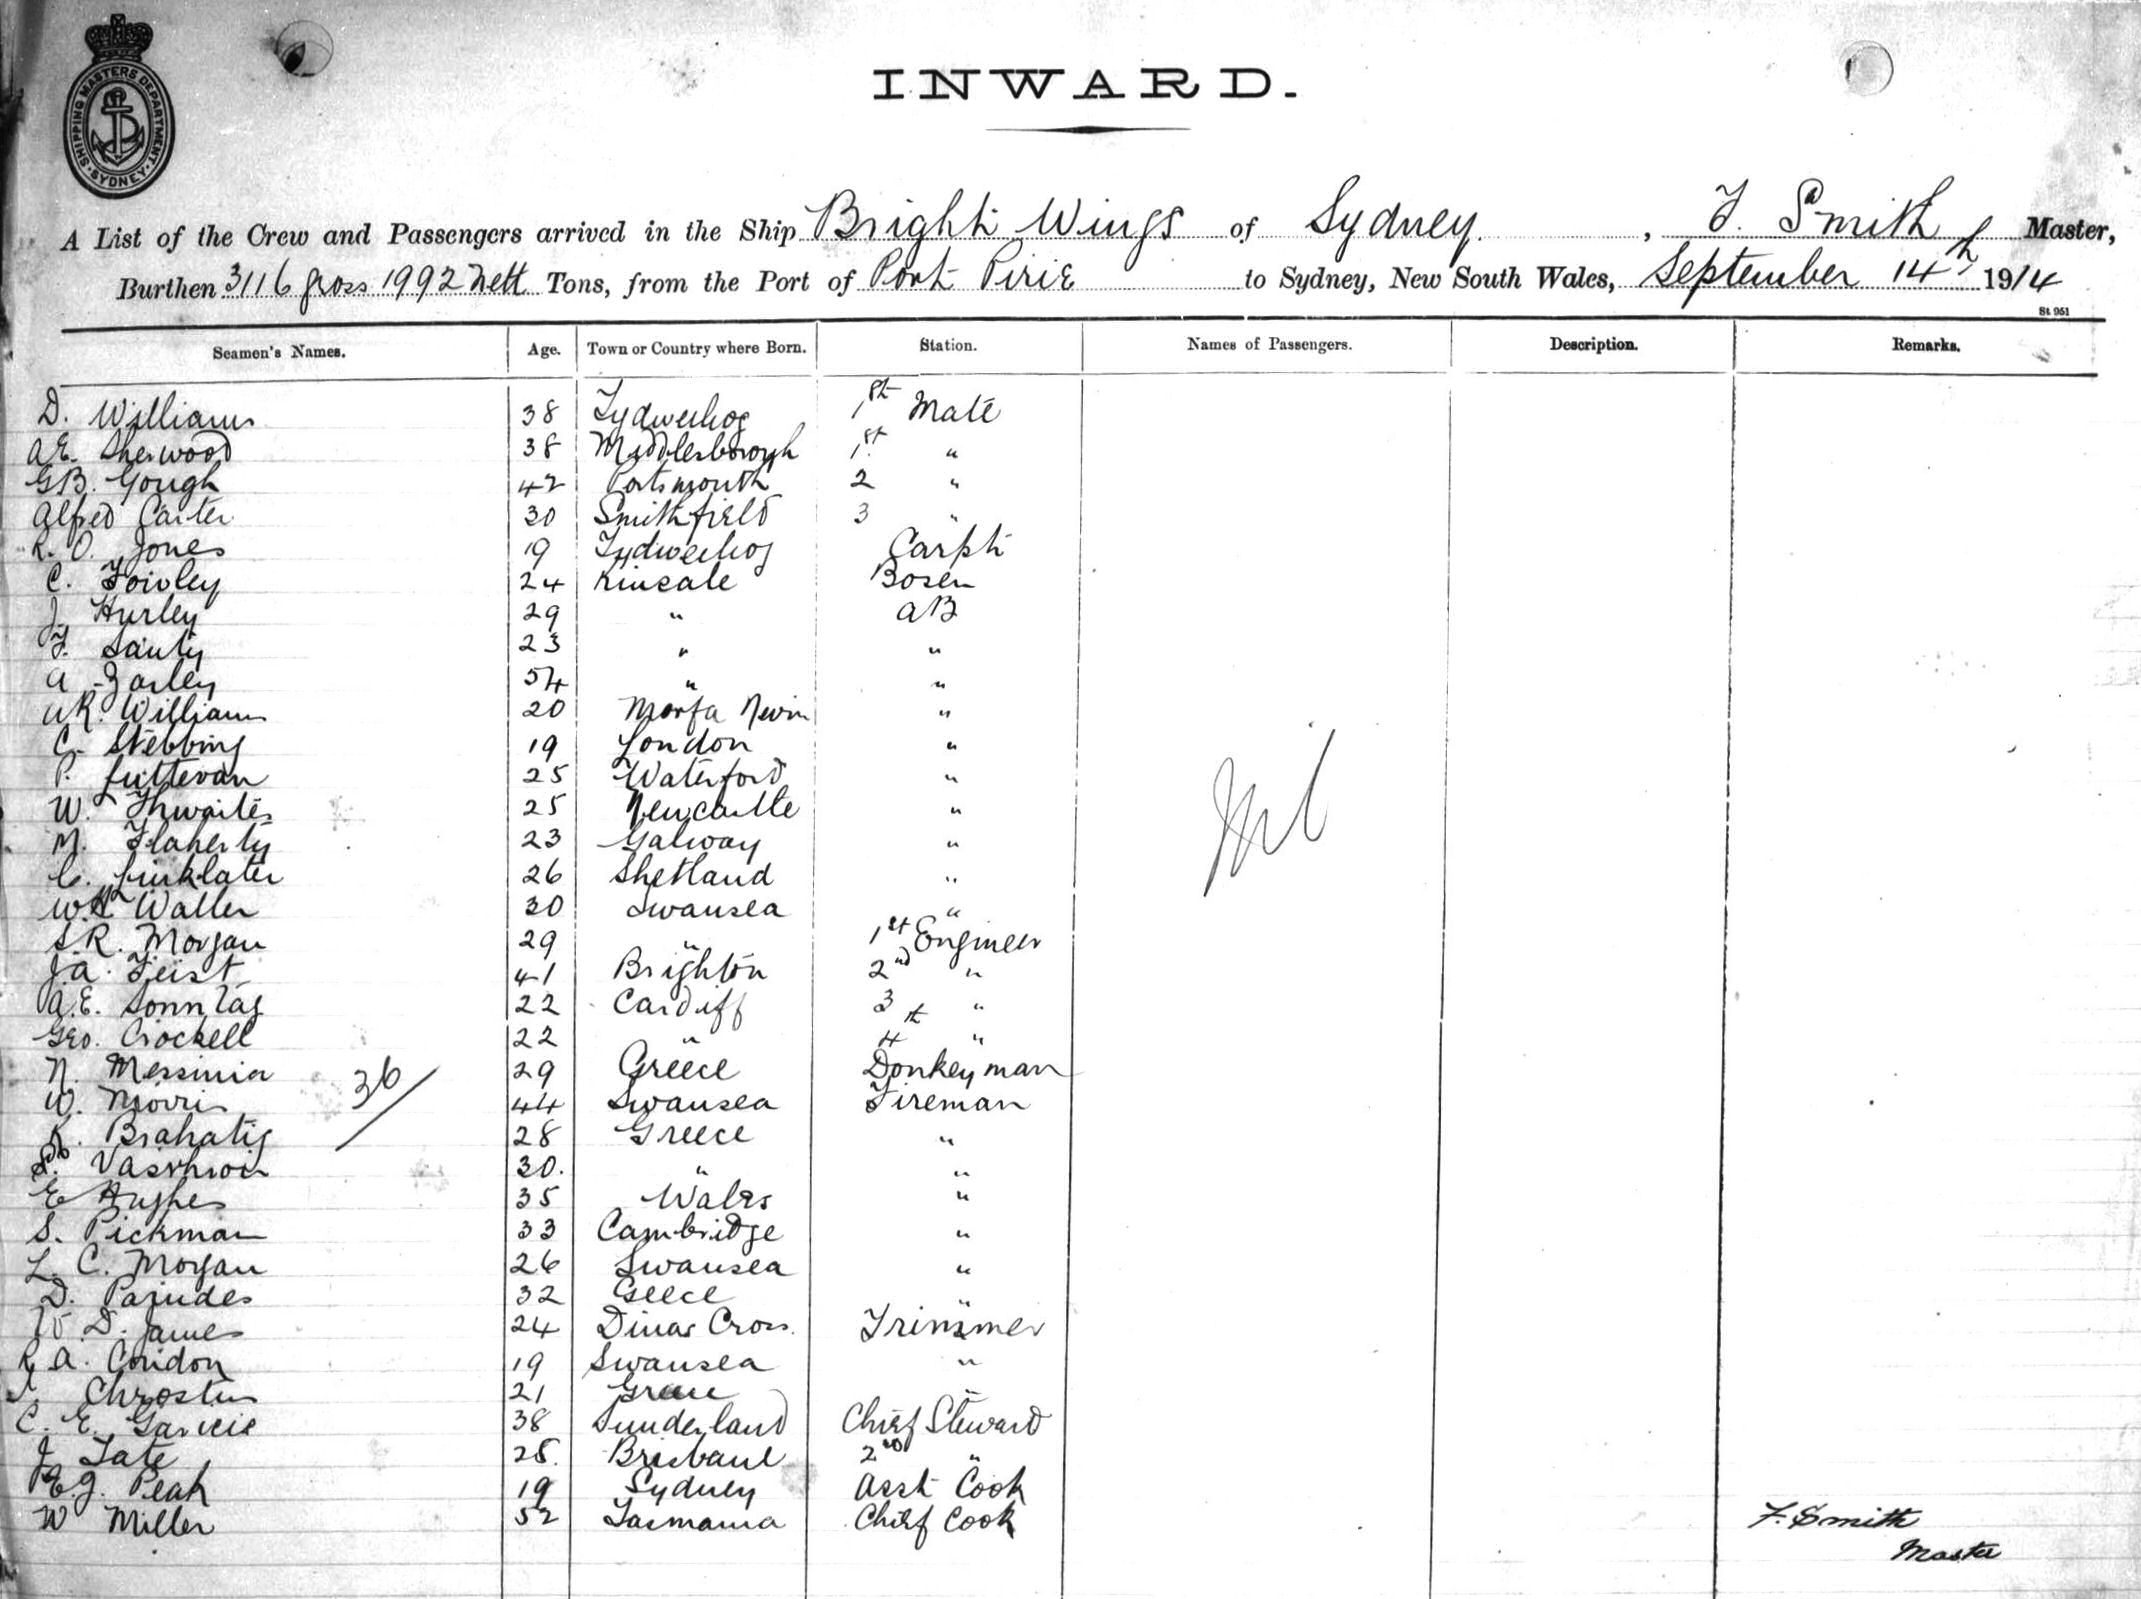 SHIPPING MASTERS DEPARTMENT · SYDNEY ·
INWARD.
A List of the Crew and Passengers arrived in the Ship Bright Wings of Sydney, F. Smith Master,
Burthen 3116 gross 1992 Nett Tons, from the Port of Port Pirie to Sydney, New South Wales, September 14th 1914
St 951
Seamen's Names. Age. Town or Country where Born. Station. Names of Passengers. Description. Remarks.
D. Williams 38 1st Mate
A.E. Sherwood 38 Middlesborough 1st "
G.B. Gough 42 Portsmouth 2 "
Alfred Carter 30 Smithfield 3 "
R. O. Jones 19 Carpt
C. 24 Kinsale Bosen
J. Hurley 29 " AB
F. Santy 23 " "
A 54 " "
W.R. Williams 20 Morfa Nevin "
C. Stebbing 19 London "
P. 25 Waterford "
W. Thwaites 25 Newcastle "
M. Flaherty 23 Galway "
C. Linklater 26 Shetland "
W.H. Waller 30 Swansea "
S.R. Morgan 29 " 1st Engineer
J.A. Feist 41 Brighton 2nd "
A.E. Sonntag 22 Cardiff 3 "
Geo. Crockell 22 " 4th "
N. Messinia 29 Greece Donkeyman
36
W. Morris 44 Swansea Fireman
Brahatis 28 Greece "
30. " "
E Hughes 35 Wales "
S. Pickman 33 Cambridge "
L. C. Morgan 26 Swansea "
D. Parudes 32 Geece "
W. D. James 24 Dinas Cross. Trimmer
R A. Condon 19 Swansea "
21 Greece "
C. E. Garvie 38 Sunderland Chief Steward
J Tate 28. Brisbane 2nd "
E.J. Peak 19 Sydney Asst Cook
W Miller 52 Tasmania Chief Cook
Nil
F. Smith
Master